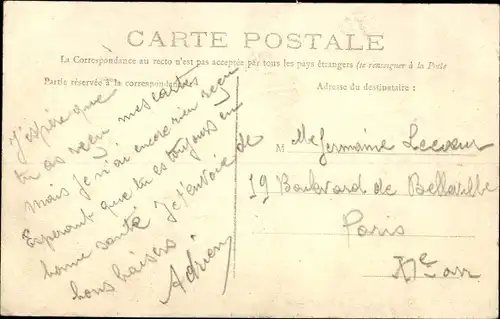 CARTE POSTALE
La Correspondance au recto n'est pas acceptée par tous les pays étrangers (se renseigner à la Poste
Partie réservée à la correspondance
Adresse du destinataire :
J'espère que
tu as reçu mes cartes
mais je n'ai encore rien reçu
Esperant que tu es toujours en
bonne santé Je t'envoie de
bons baisers
Adrien
M lle Germaine Lecoeur
19 Boulevard de Belleville
Paris
XIe arr